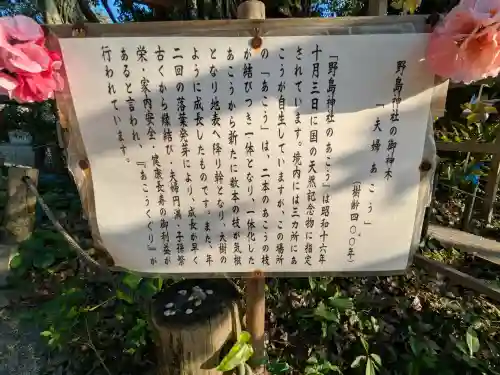 野島神社の御神木
「夫婦あこう」
（樹齢四〇〇年）
「野島神社のあこう」は昭和十六年
十月三日に国の天然記念物に指定
されています。境内には三カ所にあ
こうが自生していますが、この場所
の「あこう」は、二本のあこうの枝
が結びつき一体となり、一体化した
あこうから新たに数本の枝が気根
となり地表へ降り幹となり、大樹の
ように成長したものです。また、年
二回の落葉発芽、成長が早く
古くから縁結び・夫婦円満・子孫繁
栄・家内安全・健康長寿の御利益が
あると言われ、『あこうくぐり』が
行われています。